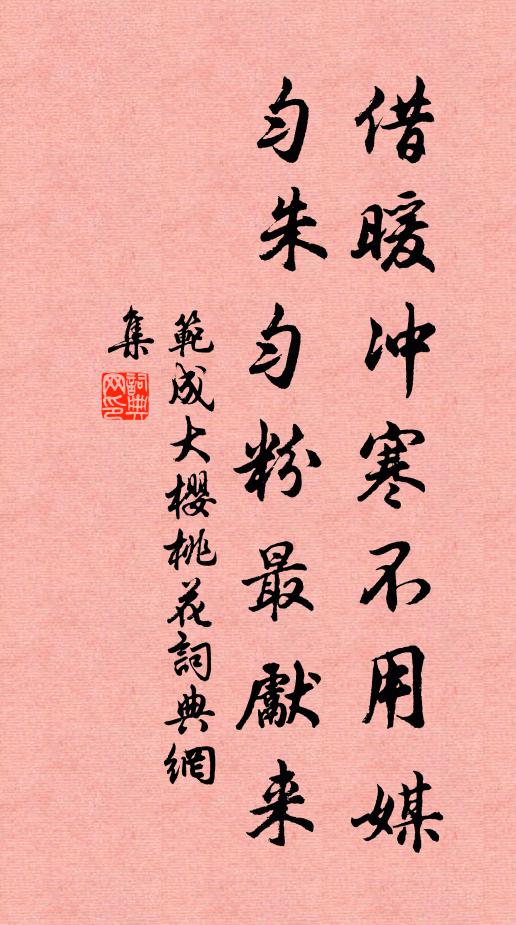 借暖冲寒不用媒
匀朱匀粉最獻来
範成大櫻桃花詞典網
集
詞典网印